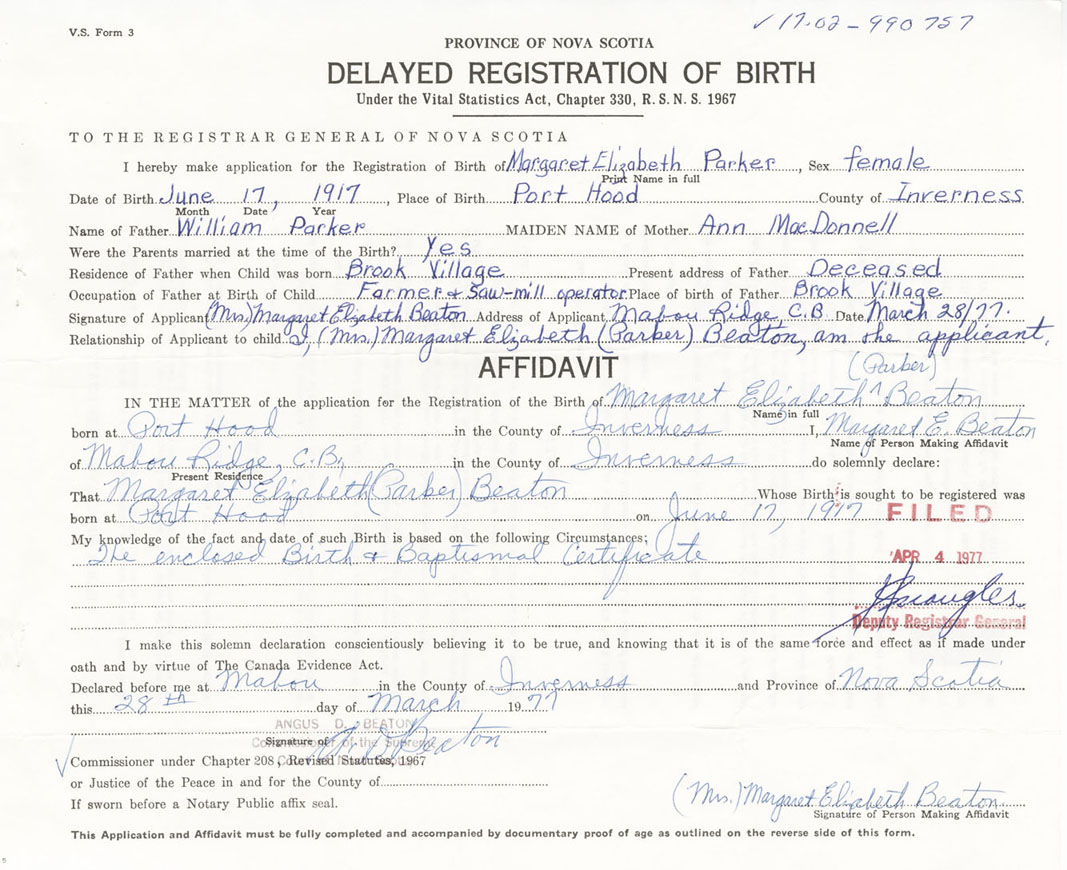 V.S. Form 3
✓ 17-02-990757
PROVINCE OF NOVA SCOTIA
DELAYED REGISTRATION OF BIRTH
Under the Vital Statistics Act, Chapter 330, R. S. N. S. 1967
TO THE REGISTRAR GENERAL OF NOVA SCOTIA
I hereby make application for the Registration of Birth of Margaret Elizabeth Parker, Sex female
Print Name in full
Date of Birth June 17, 1917, Place of Birth Port Hood County of Inverness
Month Date Year
Name of Father William Parker MAIDEN NAME of Mother Ann MacDonnell
Were the Parents married at the time of the Birth? Yes
Residence of Father when Child was born Brook Village Present address of Father Deceased
Occupation of Father at Birth of Child Farmer & Saw-mill operator Place of birth of Father Brook Village
Signature of Applicant (Mrs.) Margaret Elizabeth Beaton Address of Applicant Mabou Ridge, C.B. Date March 28/77.
Relationship of Applicant to child I, (Mrs.) Margaret Elizabeth (Parker) Beaton, am the applicant.
AFFIDAVIT
(Parker)
IN THE MATTER of the application for the Registration of the Birth of Margaret Elizabeth ^ Beaton
Name in full
born at Port Hood in the County of Inverness I, Margaret E. Beaton
Name of Person Making Affidavit
of Mabou Ridge, C.B., in the County of Inverness do solemnly declare:
Present Residence
That Margaret Elizabeth (Parker) Beaton Whose Birth is sought to be registered was
born at Port Hood on June 17, 1917 FILED
My knowledge of the fact and date of such Birth is based on the following Circumstances:
The enclosed Birth & Baptismal Certificate
APR 4 1977
Deputy Registrar General
I make this solemn declaration conscientiously believing it to be true, and knowing that it is of the same force and effect as if made under
oath and by virtue of The Canada Evidence Act.
Declared before me at Mabou in the County of Inverness and Province of Nova Scotia
this 28th day of March 1977
ANGUS D. BEATON
Signature of of the Supreme
A. D. Beaton
✓ Commissioner under Chapter 208, Revised Statutes, 1967
or Justice of the Peace in and for the County of
If sworn before a Notary Public affix seal.
(Mrs.) Margaret Elizabeth Beaton
Signature of Person Making Affidavit
This Application and Affidavit must be fully completed and accompanied by documentary proof of age as outlined on the reverse side of this form.